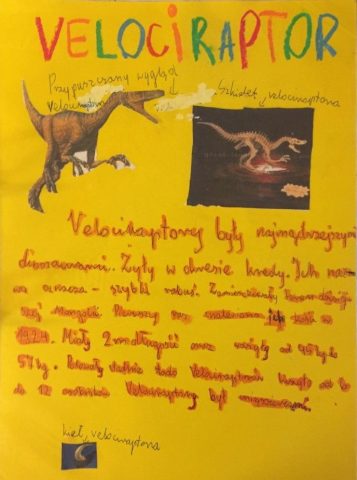 VELOCIRAPTOR
Przypuszczany wygląd
velociraptora
Szkielet velociraptora
Velociraptorey były najmądrzejszymi
dinozaurami. Żyły w okresie kredy. Ich na-
oznacza - szybki rabuś. Zamieszkiwały
Mongolii. Pierwszy raz znaleziono ich
1924. Miały 2 m długości oraz ważyły od 45 kg do
57 kg. stado Velociraptorów liczyło od 6
do 12 osobników. Velociraptory był mięsożerny.
kieł velociraptora